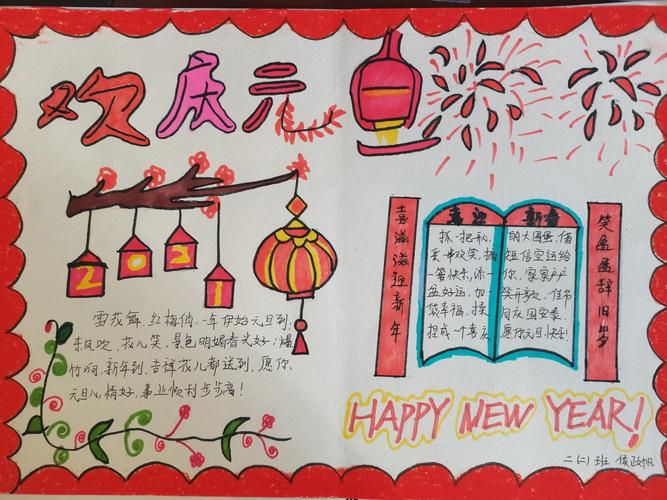 欢庆元旦
2021
雪花舞,红梅俏,一年伊始元旦到;
东风吹,花儿笑,景色明媚春光好;爆
竹响,新年到,吉祥花儿都送到,愿你
元旦心情好,事业顺利步步高!
喜滋滋迎新年
喜迎 新春
抓一把开心,
采一串欢笑,
一答快乐,添一
盆好运,加一
袋幸福,揉
捏成一个喜庆
的大圆蛋,借
短信空运给
你,家家户户
笑开颜,佳节
同庆国安泰,
愿你元旦快乐!
笑盈盈辞旧岁
HAPPY NEW YEAR!
二(二)班 侯政帆